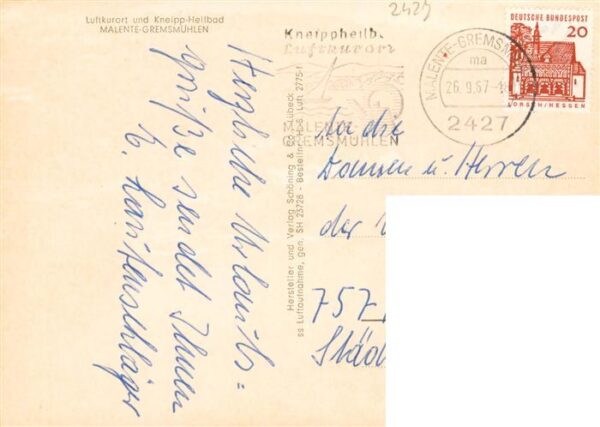 Luftkurort und Kneipp-Heilbad
MALENTE-GREMSMÜHLEN
Herzliche Urlaubs=
grüße sendet Ihnen
E. Lautenschläger
Hersteller und Verlag Schöning & Co., Lübeck
ss Luftaufnahme, gen. SH 23726 - Bestellnr. H. S. Luft 2775
2427
Kneippheilb.
Luftkurort
MALENTE-
GREMSMÜHLEN
MALENTE-GREMSM
ma
26.9.67
2427
DEUTSCHE BUNDESPOST
20
LORSCH/HESSEN
An die
Damen u. Herren
der
757
Städ